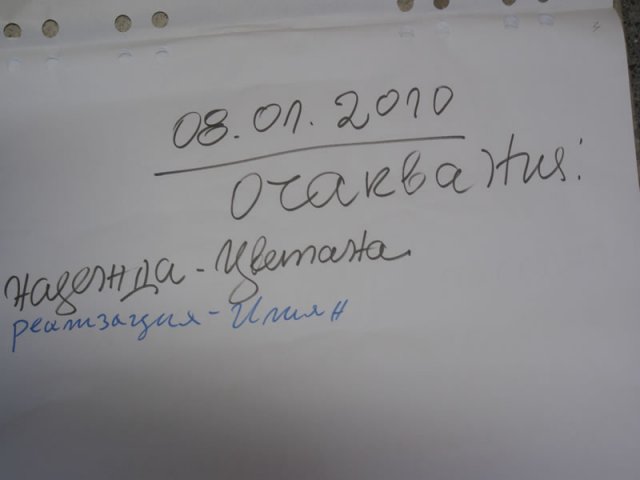 08.01.2010
Очаквания:
надежда - Цветана
реализация - Илиян